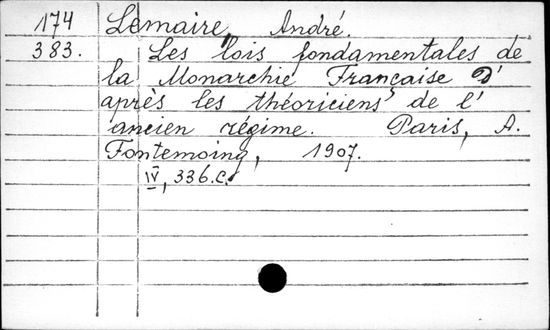 174 Lemaire, André.
383. Les lois fondamentales de
la Monarchie Française D'
après les théoriciens de l'
ancien régime. Paris, A.
Fontemoing, 1907.
IV, 336.c.